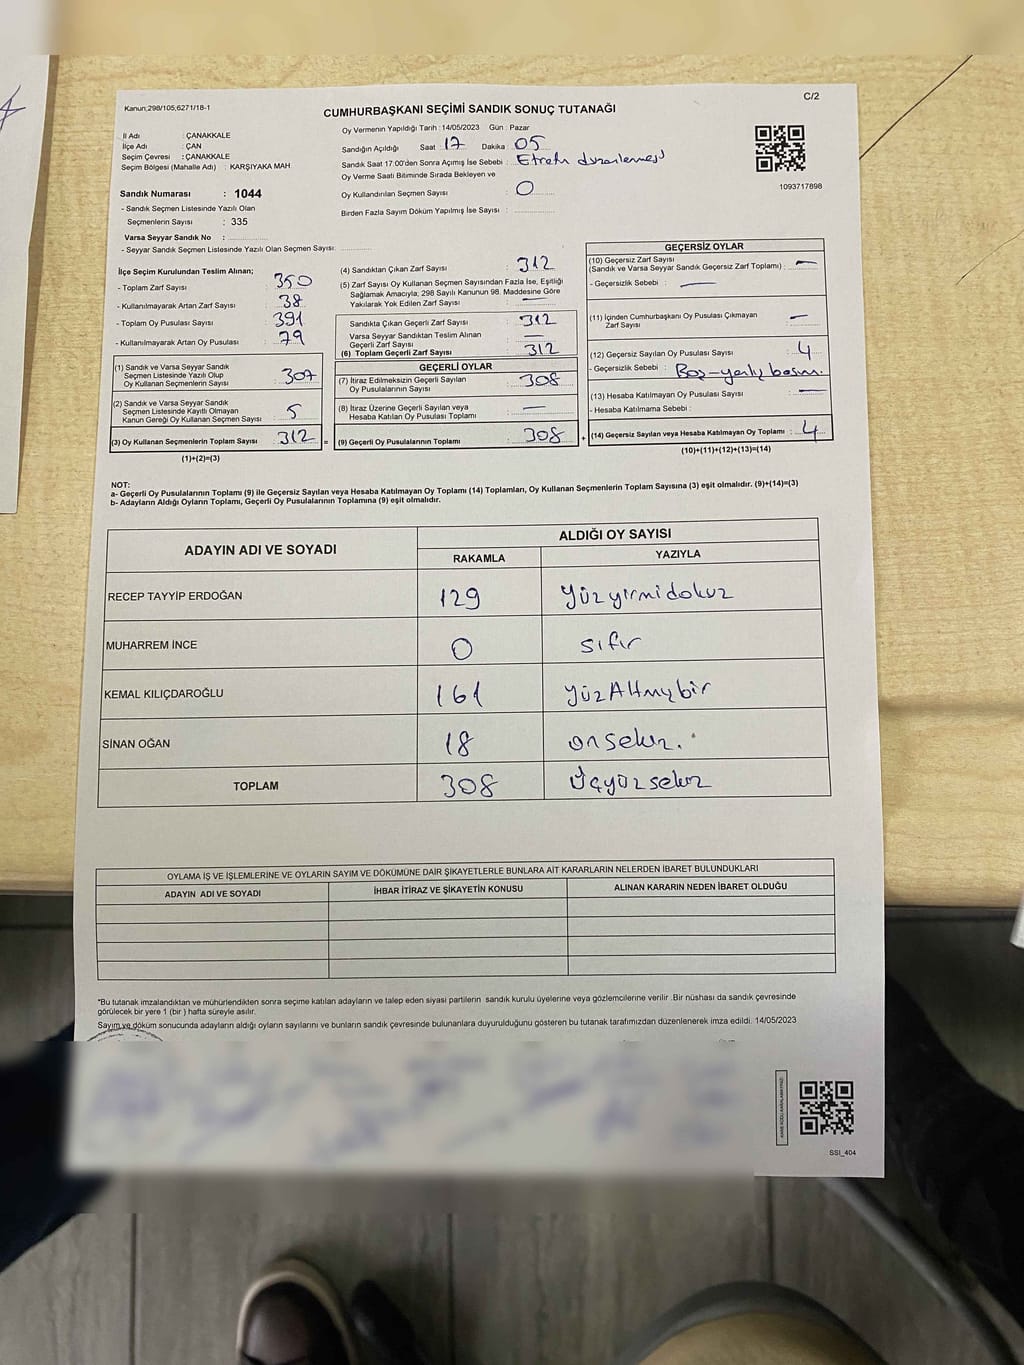 Kanun;298/105;6271/18-1
C/2
CUMHURBAŞKANI SEÇİMİ SANDIK SONUÇ TUTANAĞI
İl Adı : ÇANAKKALE
İlçe Adı : ÇAN
Seçim Çevresi : ÇANAKKALE
Seçim Bölgesi (Mahalle Adı) : KARŞIYAKA MAH
Sandık Numarası : 1044
- Sandık Seçmen Listesinde Yazılı Olan
Seçmenlerin Sayısı : 335
Varsa Seyyar Sandık No :
- Seyyar Sandık Seçmen Listesinde Yazılı Olan Seçmen Sayısı:
Oy Vermenin Yapıldığı Tarih :14/05/2023 Gün : Pazar
Sandığın Açıldığı Saat 17 Dakika 05
Sandık Saat 17:00'den Sonra Açımış İse Sebebi : Etrafı düzenlemesi
Oy Verme Saati Bitiminde Sırada Bekleyen ve
Oy Kullandırılan Seçmen Sayısı : 0
Birden Fazla Sayım Döküm Yapılmış İse Sayısı :
1093717898
İlçe Seçim Kurulundan Teslim Alınan;
- Toplam Zarf Sayısı : 350
- Kullanılmayarak Artan Zarf Sayısı : 38
- Toplam Oy Pusulası Sayısı : 391
- Kullanılmayarak Artan Oy Pusulası : 79
(1) Sandık ve Varsa Seyyar Sandık
Seçmen Listesinde Yazılı Olup
Oy Kullanan Seçmenlerin Sayısı : 307
(2) Sandık ve Varsa Seyyar Sandık
Seçmen Listesinde Kayıtlı Olmayan
Kanun Gereği Oy Kullanan Seçmen Sayısı : 5
(3) Oy Kullanan Seçmenlerin Toplam Sayısı : 312 =
(1)+(2)=(3)
(4) Sandıktan Çıkan Zarf Sayısı : 312
(5) Zarf Sayısı Oy Kullanan Seçmen Sayısından Fazla İse, Eşitliği
Sağlamak Amacıyla, 298 Sayılı Kanunun 98. Maddesine Göre
Yakılarak Yok Edilen Zarf Sayısı : —
Sandıkta Çıkan Geçerli Zarf Sayısı : 312
Varsa Seyyar Sandıktan Teslim Alınan
Geçerli Zarf Sayısı : —
(6) Toplam Geçerli Zarf Sayısı : 312
GEÇERLİ OYLAR
(7) İtiraz Edilmeksizin Geçerli Sayılan
Oy Pusulalarının Sayısı : 308
(8) İtiraz Üzerine Geçerli Sayılan veya
Hesaba Katılan Oy Pusulası Toplamı : —
(9) Geçerli Oy Pusulalarının Toplamı : 308 +
GEÇERSİZ OYLAR
(10) Geçersiz Zarf Sayısı
(Sandık ve Varsa Seyyar Sandık Geçersiz Zarf Toplamı) : —
- Geçersizlik Sebebi : —
(11) İçinden Cumhurbaşkanı Oy Pusulası Çıkmayan
Zarf Sayısı : —
(12) Geçersiz Sayılan Oy Pusulası Sayısı : 4
- Geçersizlik Sebebi : Boş-yanlış basım.
(13) Hesaba Katılmayan Oy Pusulası Sayısı : —
- Hesaba Katılmama Sebebi :
(14) Geçersiz Sayılan veya Hesaba Katılmayan Oy Toplamı : 4
(10)+(11)+(12)+(13)=(14)
NOT:
a- Geçerli Oy Pusulalarının Toplamı (9) ile Geçersiz Sayılan veya Hesaba Katılmayan Oy Toplamı (14) Toplamları, Oy Kullanan Seçmenlerin Toplam Sayısına (3) eşit olmalıdır. (9)+(14)=(3)
b- Adayların Aldığı Oyların Toplamı, Geçerli Oy Pusulalarının Toplamına (9) eşit olmalıdır.
ADAYIN ADI VE SOYADI ALDIĞI OY SAYISI
RAKAMLA YAZIYLA
RECEP TAYYİP ERDOĞAN 129 Yüzyirmidokuz
MUHARREM İNCE 0 sıfır
KEMAL KILIÇDAROĞLU 161 yüzAltmışbir
SİNAN OĞAN 18 onsekiz.
TOPLAM 308 Üçyüzsekiz
OYLAMA İŞ VE İŞLEMLERİNE VE OYLARIN SAYIM VE DÖKÜMÜNE DAİR ŞİKAYETLERLE BUNLARA AİT KARARLARIN NELERDEN İBARET BULUNDUKLARI
ADAYIN ADI VE SOYADI İHBAR İTİRAZ VE ŞİKAYETİN KONUSU ALINAN KARARIN NEDEN İBARET OLDUĞU
*Bu tutanak imzalandıktan ve mühürlendikten sonra seçime katılan adayların ve talep eden siyasi partilerin sandık kurulu üyelerine veya gözlemcilerine verilir .Bir nüshası da sandık çevresinde
görülecek bir yere 1 (bir ) hafta süreyle asılır.
Sayım ve döküm sonucunda adayların aldığı oyların sayılarını ve bunların sandık çevresinde bulunanlara duyurulduğunu gösteren bu tutanak tarafımızdan düzenlenerek imza edildi. 14/05/2023
SSI_404